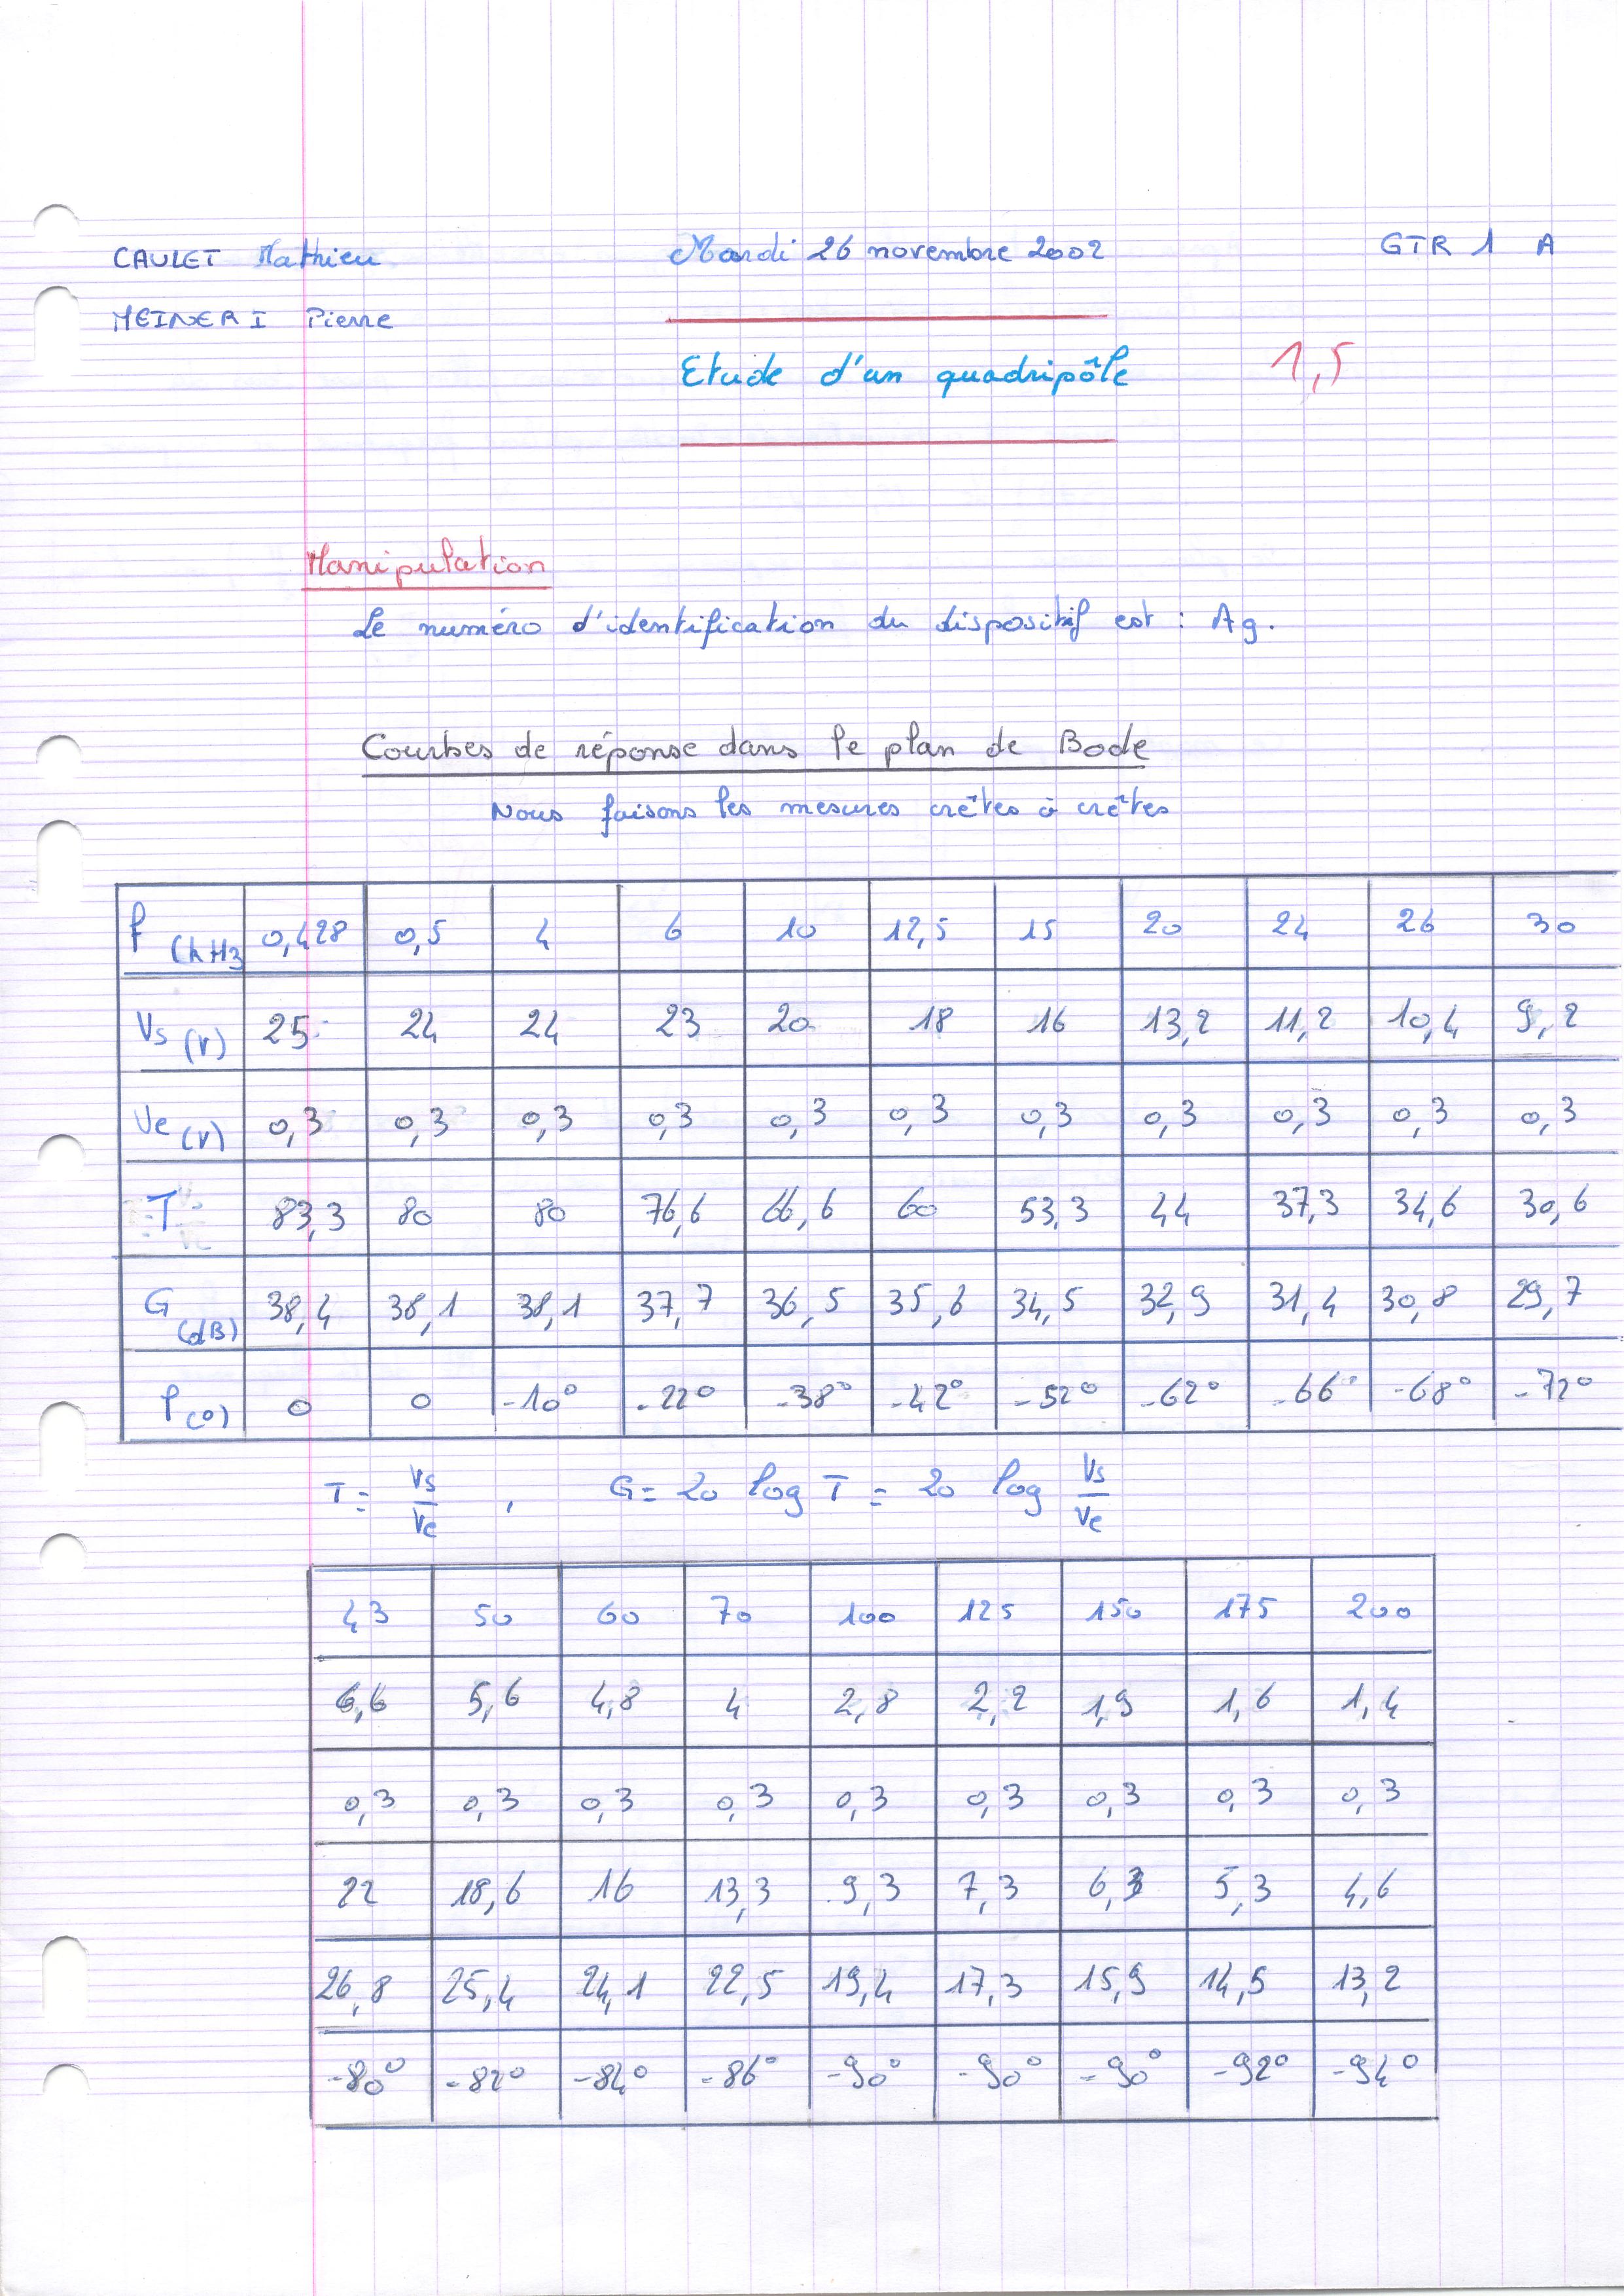 CAULET Mathieu Mardi 26 novembre 2002 GTR 1 A
MEINERI Pierre
Etude d'un quadripôle 1,5
Manipulation
Le numéro d'identification du dispositif est : Ag.
Courbes de réponse dans le plan de Bode
Nous faisons les mesures crêtes à crêtes
f (kHz 0,428 0,5 4 6 10 12,5 15 20 24 26 30
Vs (V) 25 24 24 23 20 18 16 13,2 11,2 10,4 9,2
Ve (V) 0,3 0,3 0,3 0,3 0,3 0,3 0,3 0,3 0,3 0,3 0,3
T 83,3 80 80 76,6 66,6 60 53,3 44 37,3 34,6 30,6
G (dB) 38,4 38,1 38,1 37,7 36,5 35,6 34,5 32,9 31,4 30,8 29,7
φ (°) 0 0 -10° -22° -38° -42° -52° -62° -66° -68° -72°
T = Vs/Ve , G = 20 log T = 20 log Vs/Ve
43 50 60 70 100 125 150 175 200
6,6 5,6 4,8 4 2,8 2,2 1,9 1,6 1,4
0,3 0,3 0,3 0,3 0,3 0,3 0,3 0,3 0,3
22 18,6 16 13,3 9,3 7,3 6,3 5,3 4,6
26,8 25,4 24,1 22,5 19,4 17,3 15,9 14,5 13,2
-80° -82° -84° -86° -90° -90° -90° -92° -94°